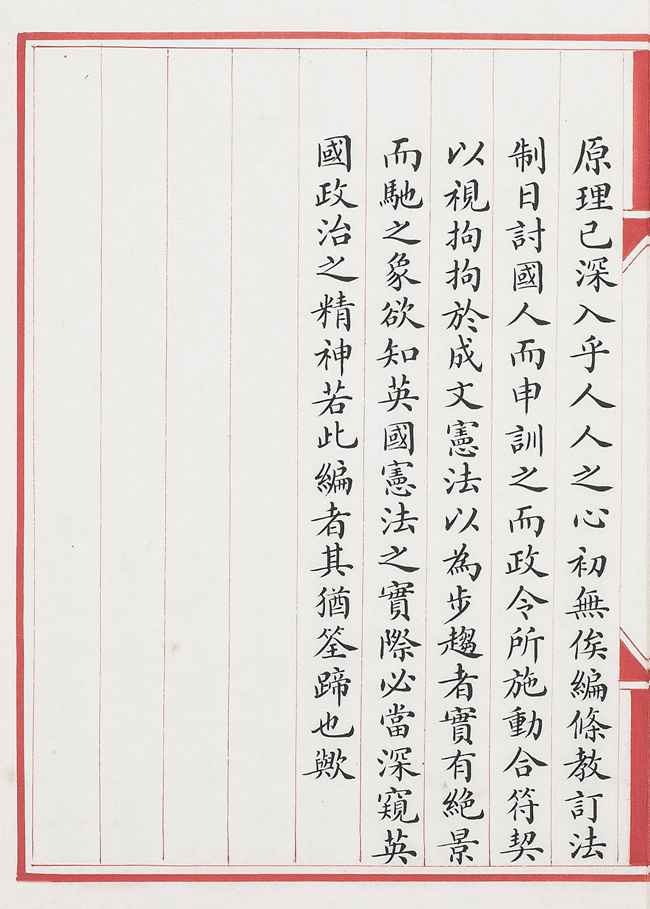 原理已深入乎人人之心初無俟編條教訂法
制日討國人而申訓之而政令所施動合符契
以視拘拘於成文憲法以為步趨者實有絕景
而馳之象欲知英國憲法之實際必當深窺英
國政治之精神若此編者其猶筌蹄也歟